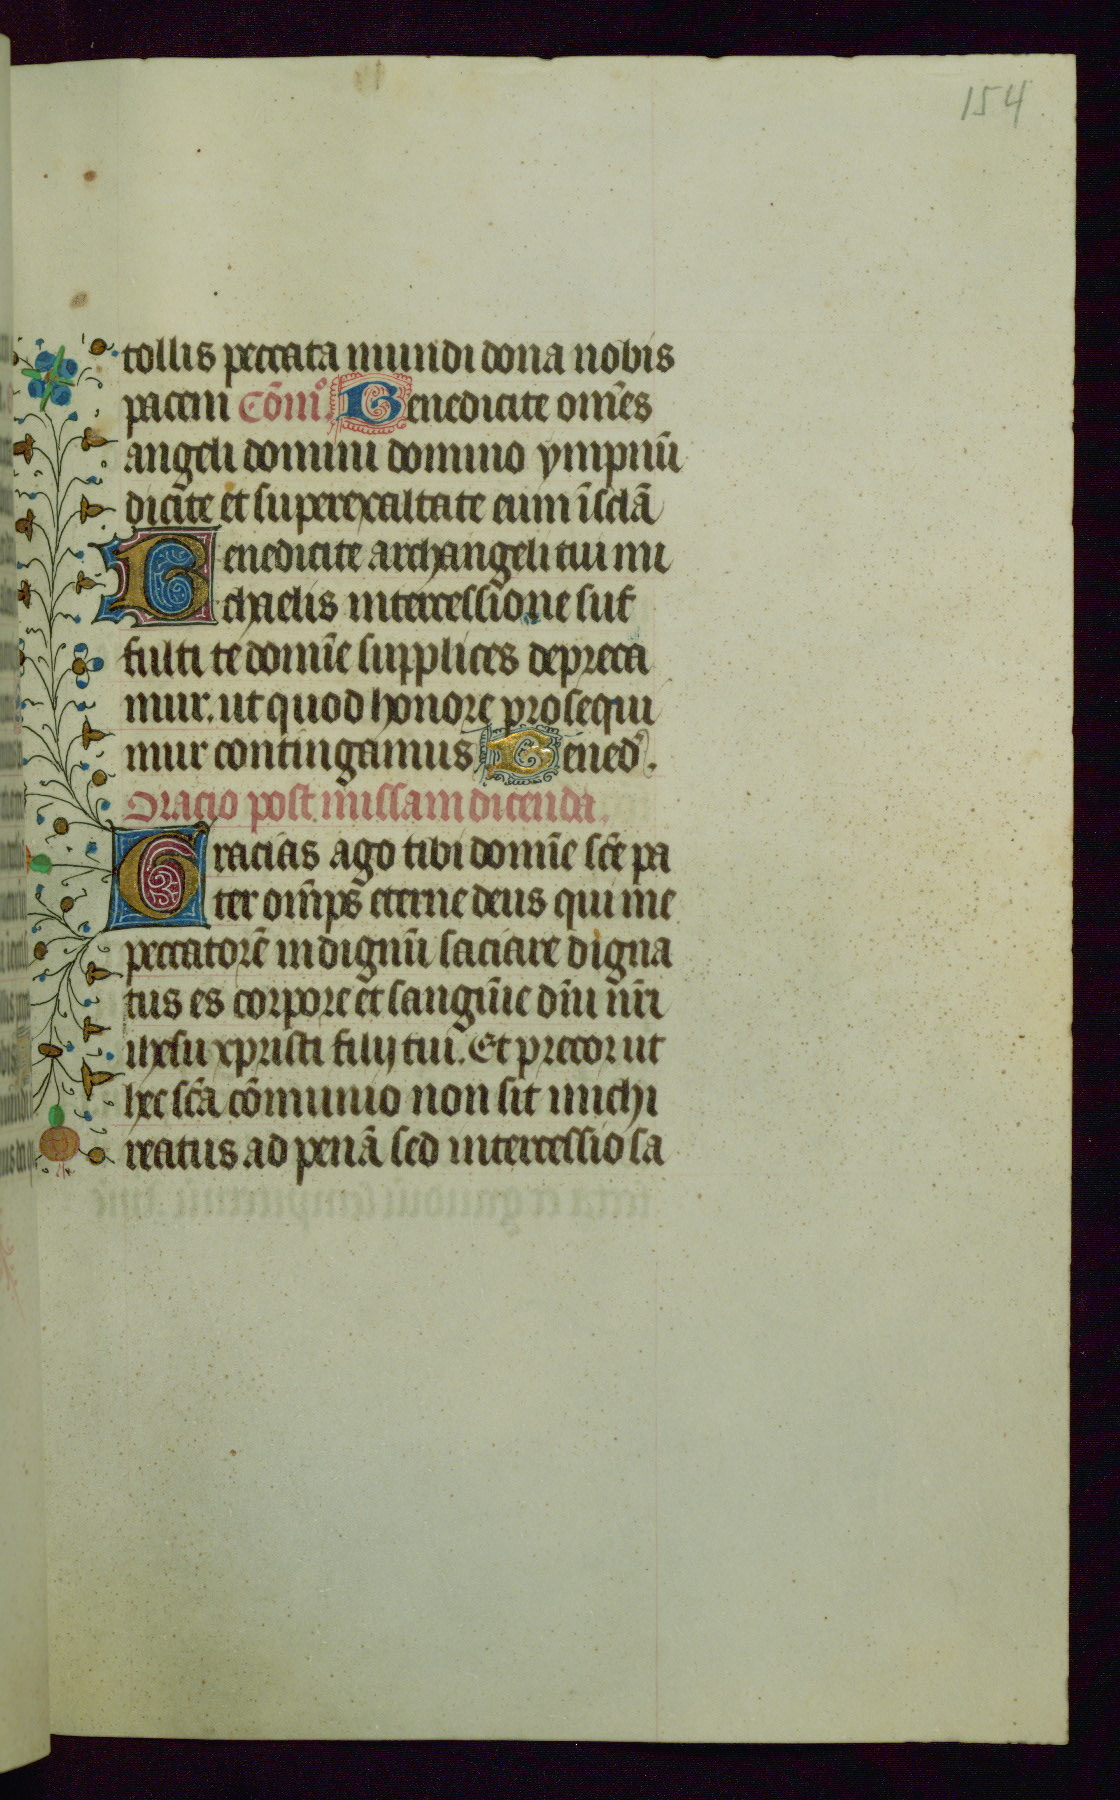 154
tollis peccata mundi dona nobis
pacem Cōmo. Benedicite om̄es
angeli domini domino ympnū
dicite et superexaltate eum ī sclā
Benedicite archangeli tui mi
chaelis intercessione suf
fulti te domīe supplices depreca
mur. ut quod honore prosequi
mur contingamus Bened̄.
Oracio post missam dicenda.
Gracias ago tibi domīe sc̄e pa
ter om̄ps eterne deus qui me
peccatorē indignū saciare digna
tus es corpore et sanguīe dn̄i nr̄i
ihesu xpristi filij tui. Et precor ut
hec sc̄a cōmunio non sit michi
reatus ad penā sed intercessio sa